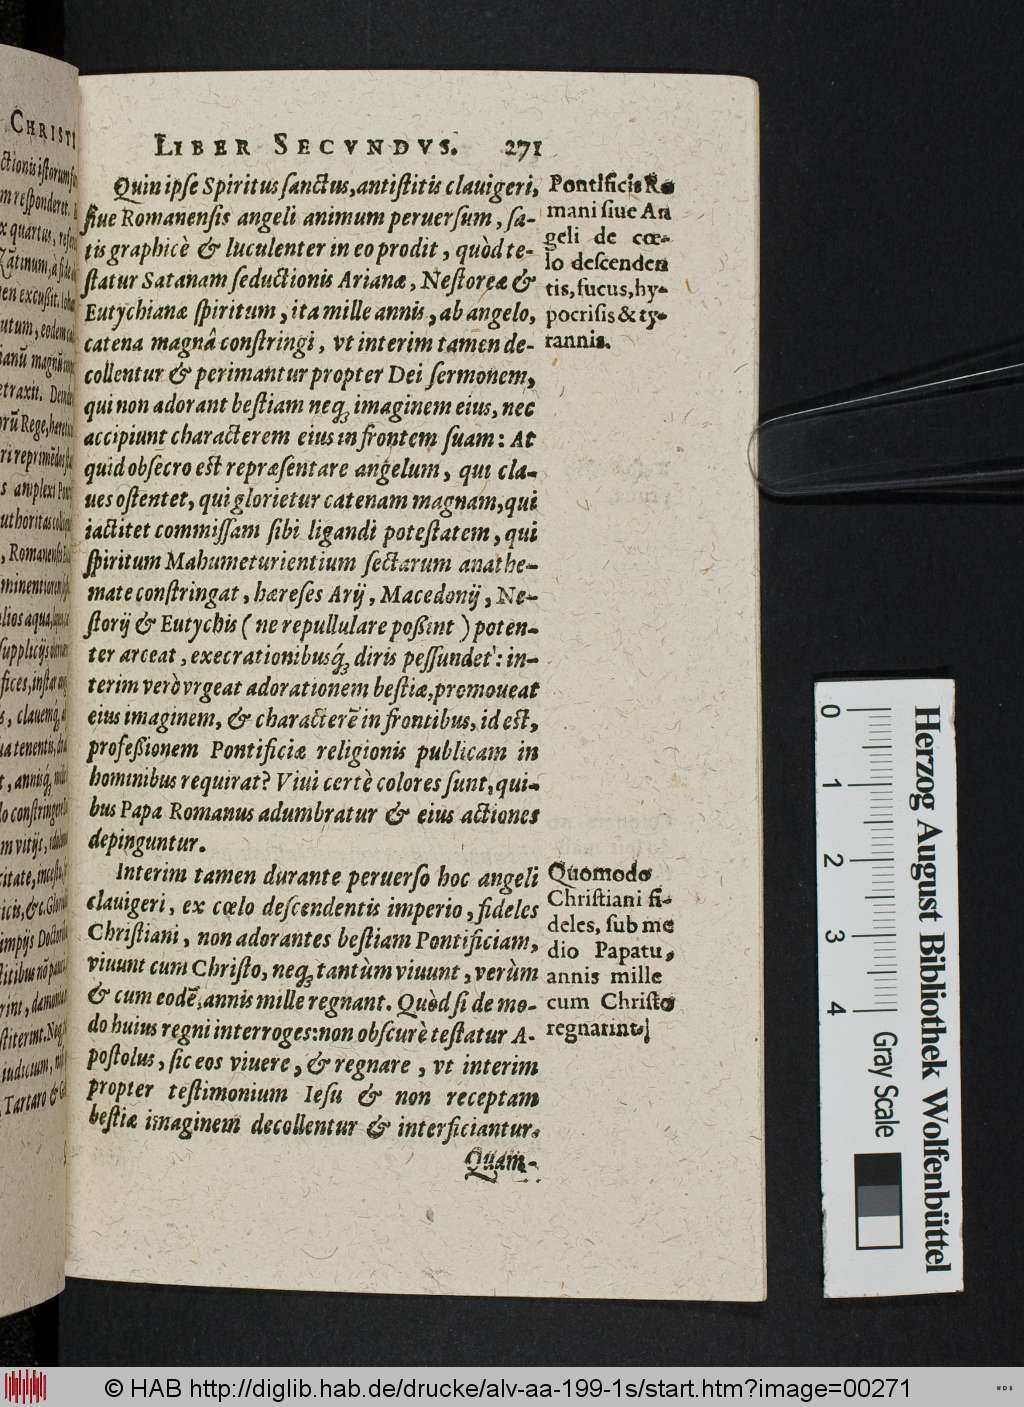 LIBER SECVNDVS. 271
Quin ipse Spiritus sanctus, antistitis clauigeri,
siue Romanensis angeli animum peruersum, sa-
tis graphicè & luculenter in eo prodit, quòd te-
statur Satanam seductionis Arianæ, Nestoreæ &
Eutychianæ spiritum, ita mille annis, ab angelo,
catena magnâ constringi, vt interim tamen de-
collentur & perimantur propter Dei sermonem,
qui non adorant bestiam neq; imaginem eius, nec
accipiunt characterem eius in frontem suam: At
quid obsecro est repræsentare angelum, qui cla-
ues ostentet, qui glorietur catenam magnam, qui
iactitet commissam sibi ligandi potestatem, qui
spiritum Mahumeturientium sectarum anathe-
mate constringat, hæreses Arij, Macedonij, Ne-
storij & Eutychis (ne repullulare possint) poten-
ter arceat, execrationibusq́; diris pessundet: in-
terim verò vrgeat adorationem bestiæ, promoueat
eius imaginem, & characterē in frontibus, id est,
professionem Pontificiæ religionis publicam in
hominibus requirat? Viui certè colores sunt, qui-
bus Papa Romanus adumbratur & eius actiones
depinguntur.
Pontificis Ro
mani siue An
geli de cœ-
lo descenden
tis, fucus, hy-
pocrisis & ty-
rannis.
Interim tamen durante peruerso hoc angeli
clauigeri, ex cœlo descendentis imperio, fideles
Christiani, non adorantes bestiam Pontificiam,
viuunt cum Christo, neq; tantùm viuunt, verùm
& cum eodē, annis mille regnant. Quòd si de mo-
do huius regni interroges: non obscurè testatur A-
postolus, sic eos viuere, & regnare, vt interim
propter testimonium Iesu & non receptam
bestiæ imaginem decollentur & interficiantur.
Quam-
Quomodo
Christiani fi-
deles, sub me
dio Papatu,
annis mille
cum Christo
regnarint.
CHRISTI
Herzog August Bibliothek Wolfenbüttel
0 1 2 3 4
Gray Scale
© HAB http://diglib.hab.de/drucke/alv-aa-199-1s/start.htm?image=00271